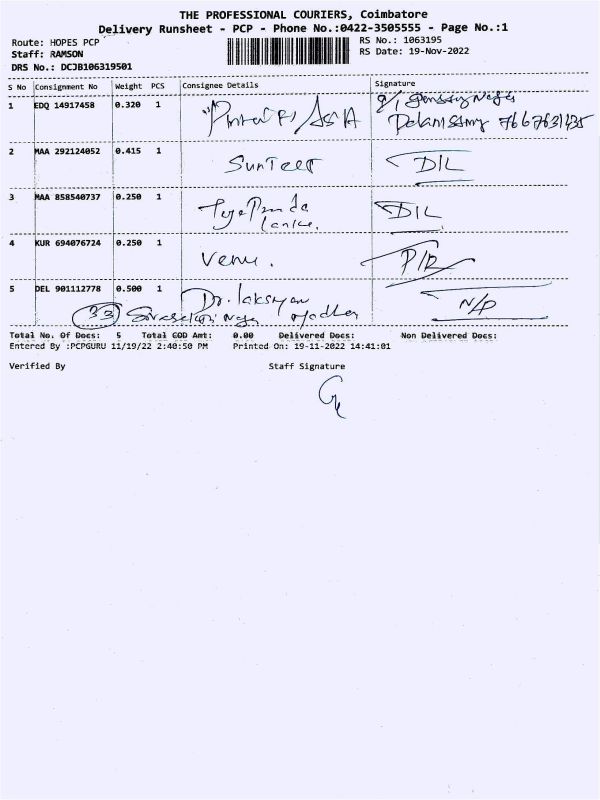 THE PROFESSIONAL COURIERS, Coimbatore
Delivery Runsheet - PCP - Phone No.:0422-3505555 - Page No.:1
Route: HOPES PCP
RS No.: 1063195
Staff: RAMSON
RS Date: 19-Nov-2022
DRS No.: DCJB106319501
S No Consignment No Weight PCS Consignee Details Signature
1 EDQ 14917458 0.320 1 ASIA
7667631435
2 MAA 292124052 0.415 1 SunTeer D/L
3 MAA 858540737 0.250 1 D/L
4 KUR 694076724 0.250 1 Venu. P/R
5 DEL 901112778 0.500 1 Dr. N/P
33
Total No. Of Docs: 5 Total COD Amt: 0.00 Delivered Docs: Non Delivered Docs:
Entered By :PCPGURU 11/19/22 2:40:50 PM Printed On: 19-11-2022 14:41:01
Verified By Staff Signature